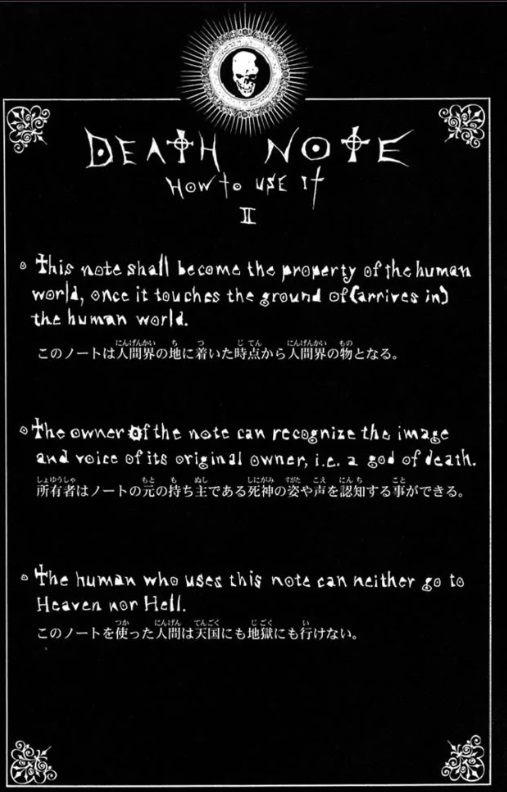 DEATH NOTE
HOW to USE It
II
This note shall become the property of the human
world, once it touches the ground of (arrives in)
the human world.
このノートは人間界の地に着いた時点から人間界の物となる。
The owner of the note can recognize the image
and voice of its original owner, i.e. a god of death.
所有者はノートの元の持ち主である死神の姿や声を認知する事ができる。
The human who uses this note can neither go to
Heaven nor Hell.
このノートを使った人間は天国にも地獄にも行けない。